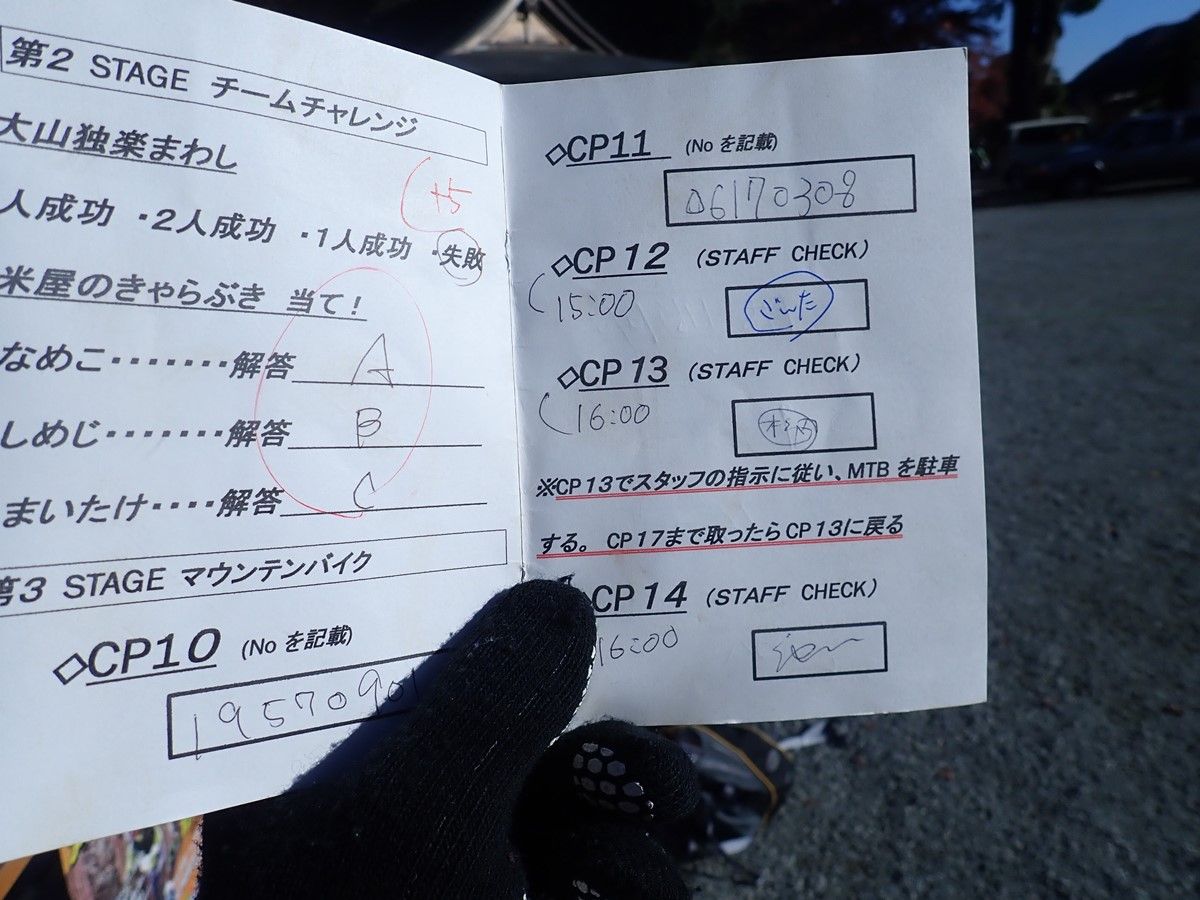 第2 STAGE チームチャレンジ
大山独楽まわし
+5
人成功 ・2人成功 ・1人成功 ・失敗
米屋のきゃらぶき 当て!
なめこ・・・・・・・解答 A
しめじ・・・・・・・解答 B
まいたけ・・・・解答 C
第3 STAGE マウンテンバイク
◇CP10 (Noを記載)
19570901
◇CP11 (Noを記載)
06170308
◇CP12 (STAFF CHECK)
15:00 ごんた
◇CP13 (STAFF CHECK)
16:00
※CP13でスタッフの指示に従い、MTBを駐車
する。 CP17まで取ったらCP13に戻る
CP14 (STAFF CHECK)
16:00